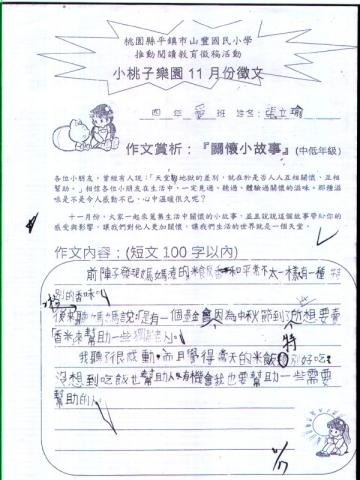 桃園縣平鎮市山豐國民小學
推動閱讀教育徵稿活動
小桃子樂園11月份徵文
四 年 愛 班 姓名:張立瑜
作文賞析:『關懷小故事』(中低年級)
各位小朋友,曾經有人說:「天堂與地獄的差別,就在於是否人人互相關懷、互相
幫助。」相信各位小朋友在生活中,一定見過、聽過、體驗過關懷的滋味。那種滋
味是不是令人感動不已、心中溫暖很久呢?
十一月份,大家一起來蒐集生活中關懷的小故事,並且說說這個故事帶給你的
感受與影響,讓我們對他人更加關懷,讓我們生活的世界就是一個天堂。
作文內容:(短文100字以內)
前陣子發現媽媽煮的米飯香味和平常不太一樣有一種特
別的香味。
後來聽媽媽說是有一個基金會因為中秋節到了所想要賣
香米來幫助一些人。
我聽了很感動,而且覺得當天的米飯特別好吃。
沒想到吃飯也幫助人有機會我也要幫助一些需要
幫助的人
11/17